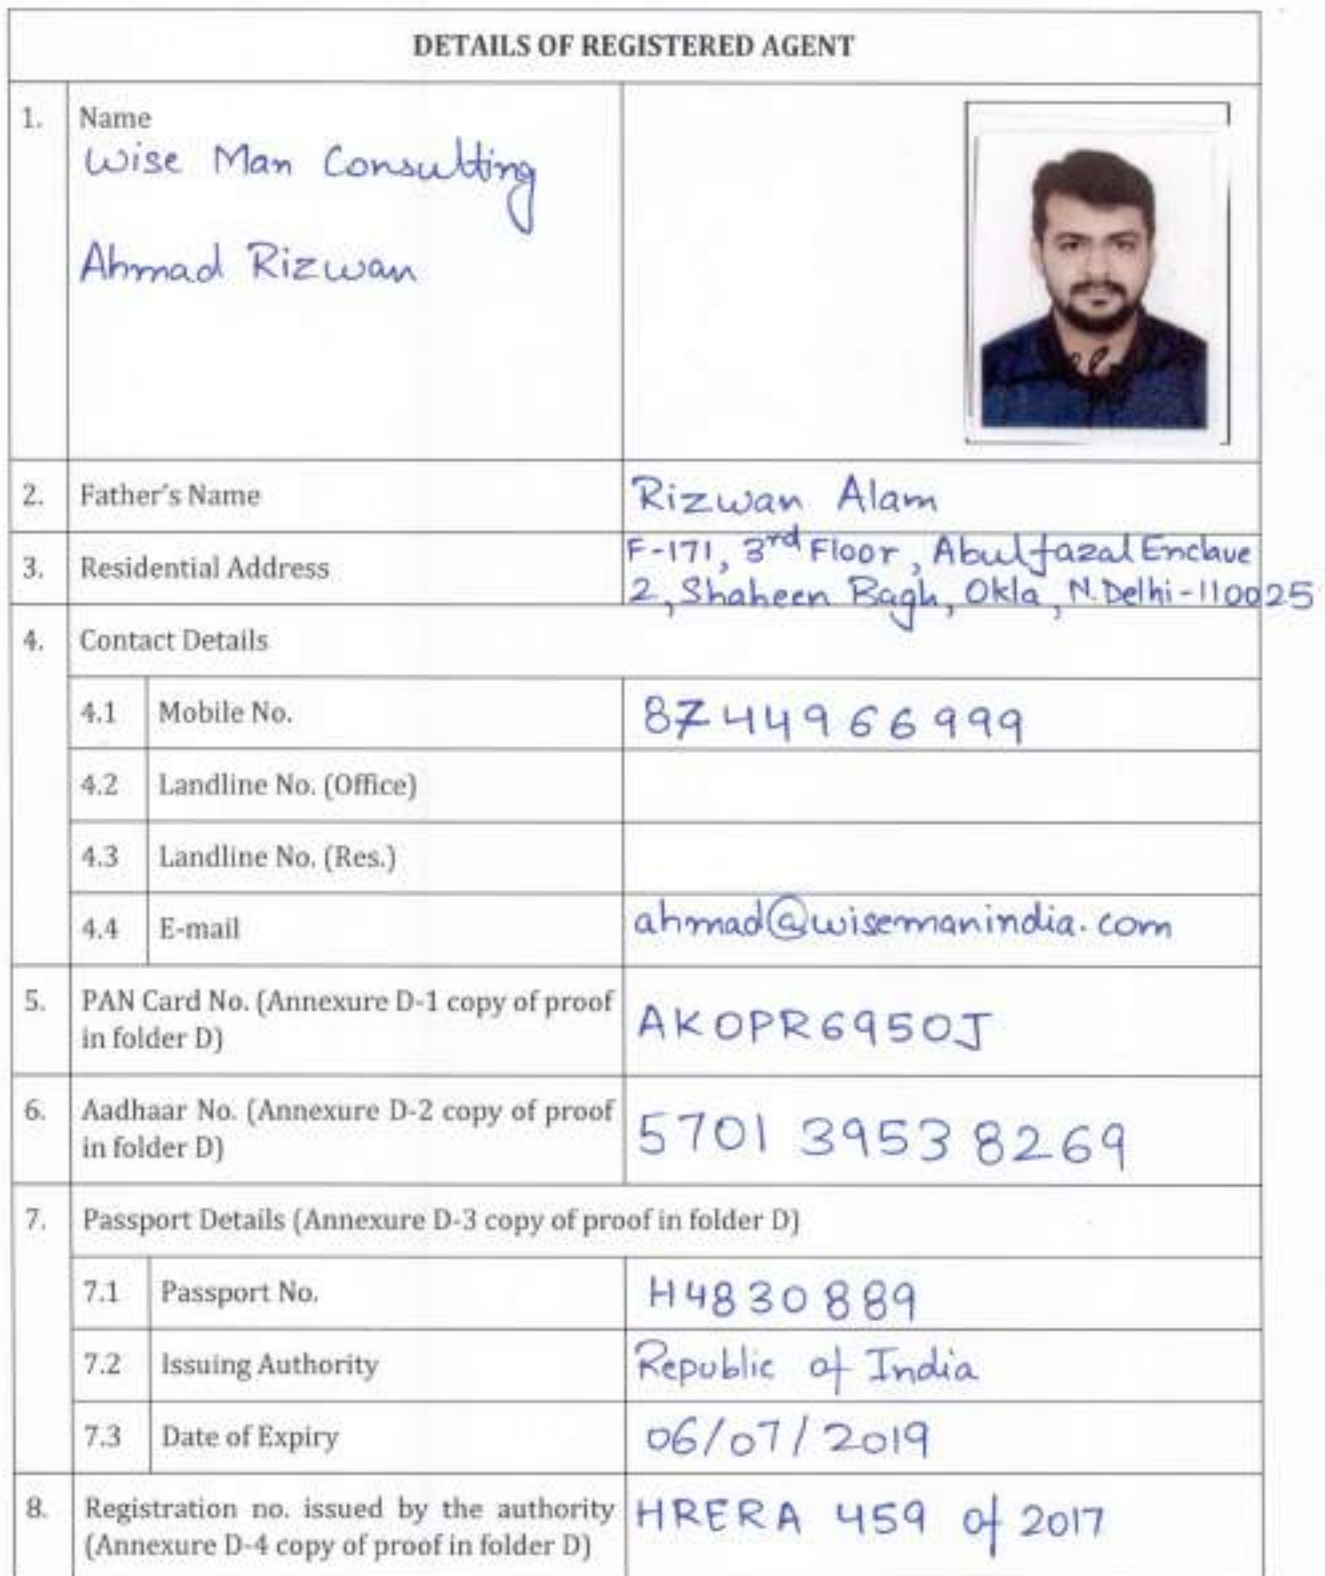 DETAILS OF REGISTERED AGENT
1. Name
Wise Man Consulting
Ahmad Rizwan
2. Father's Name Rizwan Alam
3. Residential Address F-171, 3rd Floor, Abulfazal Enclave
2, Shaheen Bagh, Okla, N. Delhi - 110025
4. Contact Details
4.1 Mobile No. 8744966999
4.2 Landline No. (Office)
4.3 Landline No. (Res.)
4.4 E-mail ahmad@wisemanindia.com
5. PAN Card No. (Annexure D-1 copy of proof
in folder D) AKOPR6950J
6. Aadhaar No. (Annexure D-2 copy of proof
in folder D) 5701 3953 8269
7. Passport Details (Annexure D-3 copy of proof in folder D)
7.1 Passport No. H4830889
7.2 Issuing Authority Republic of India
7.3 Date of Expiry 06/07/2019
8. Registration no. issued by the authority HRERA 459 of 2017
(Annexure D-4 copy of proof in folder D)